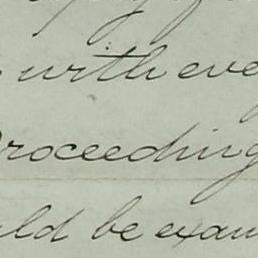 with eve
Proceeding
uld be exam